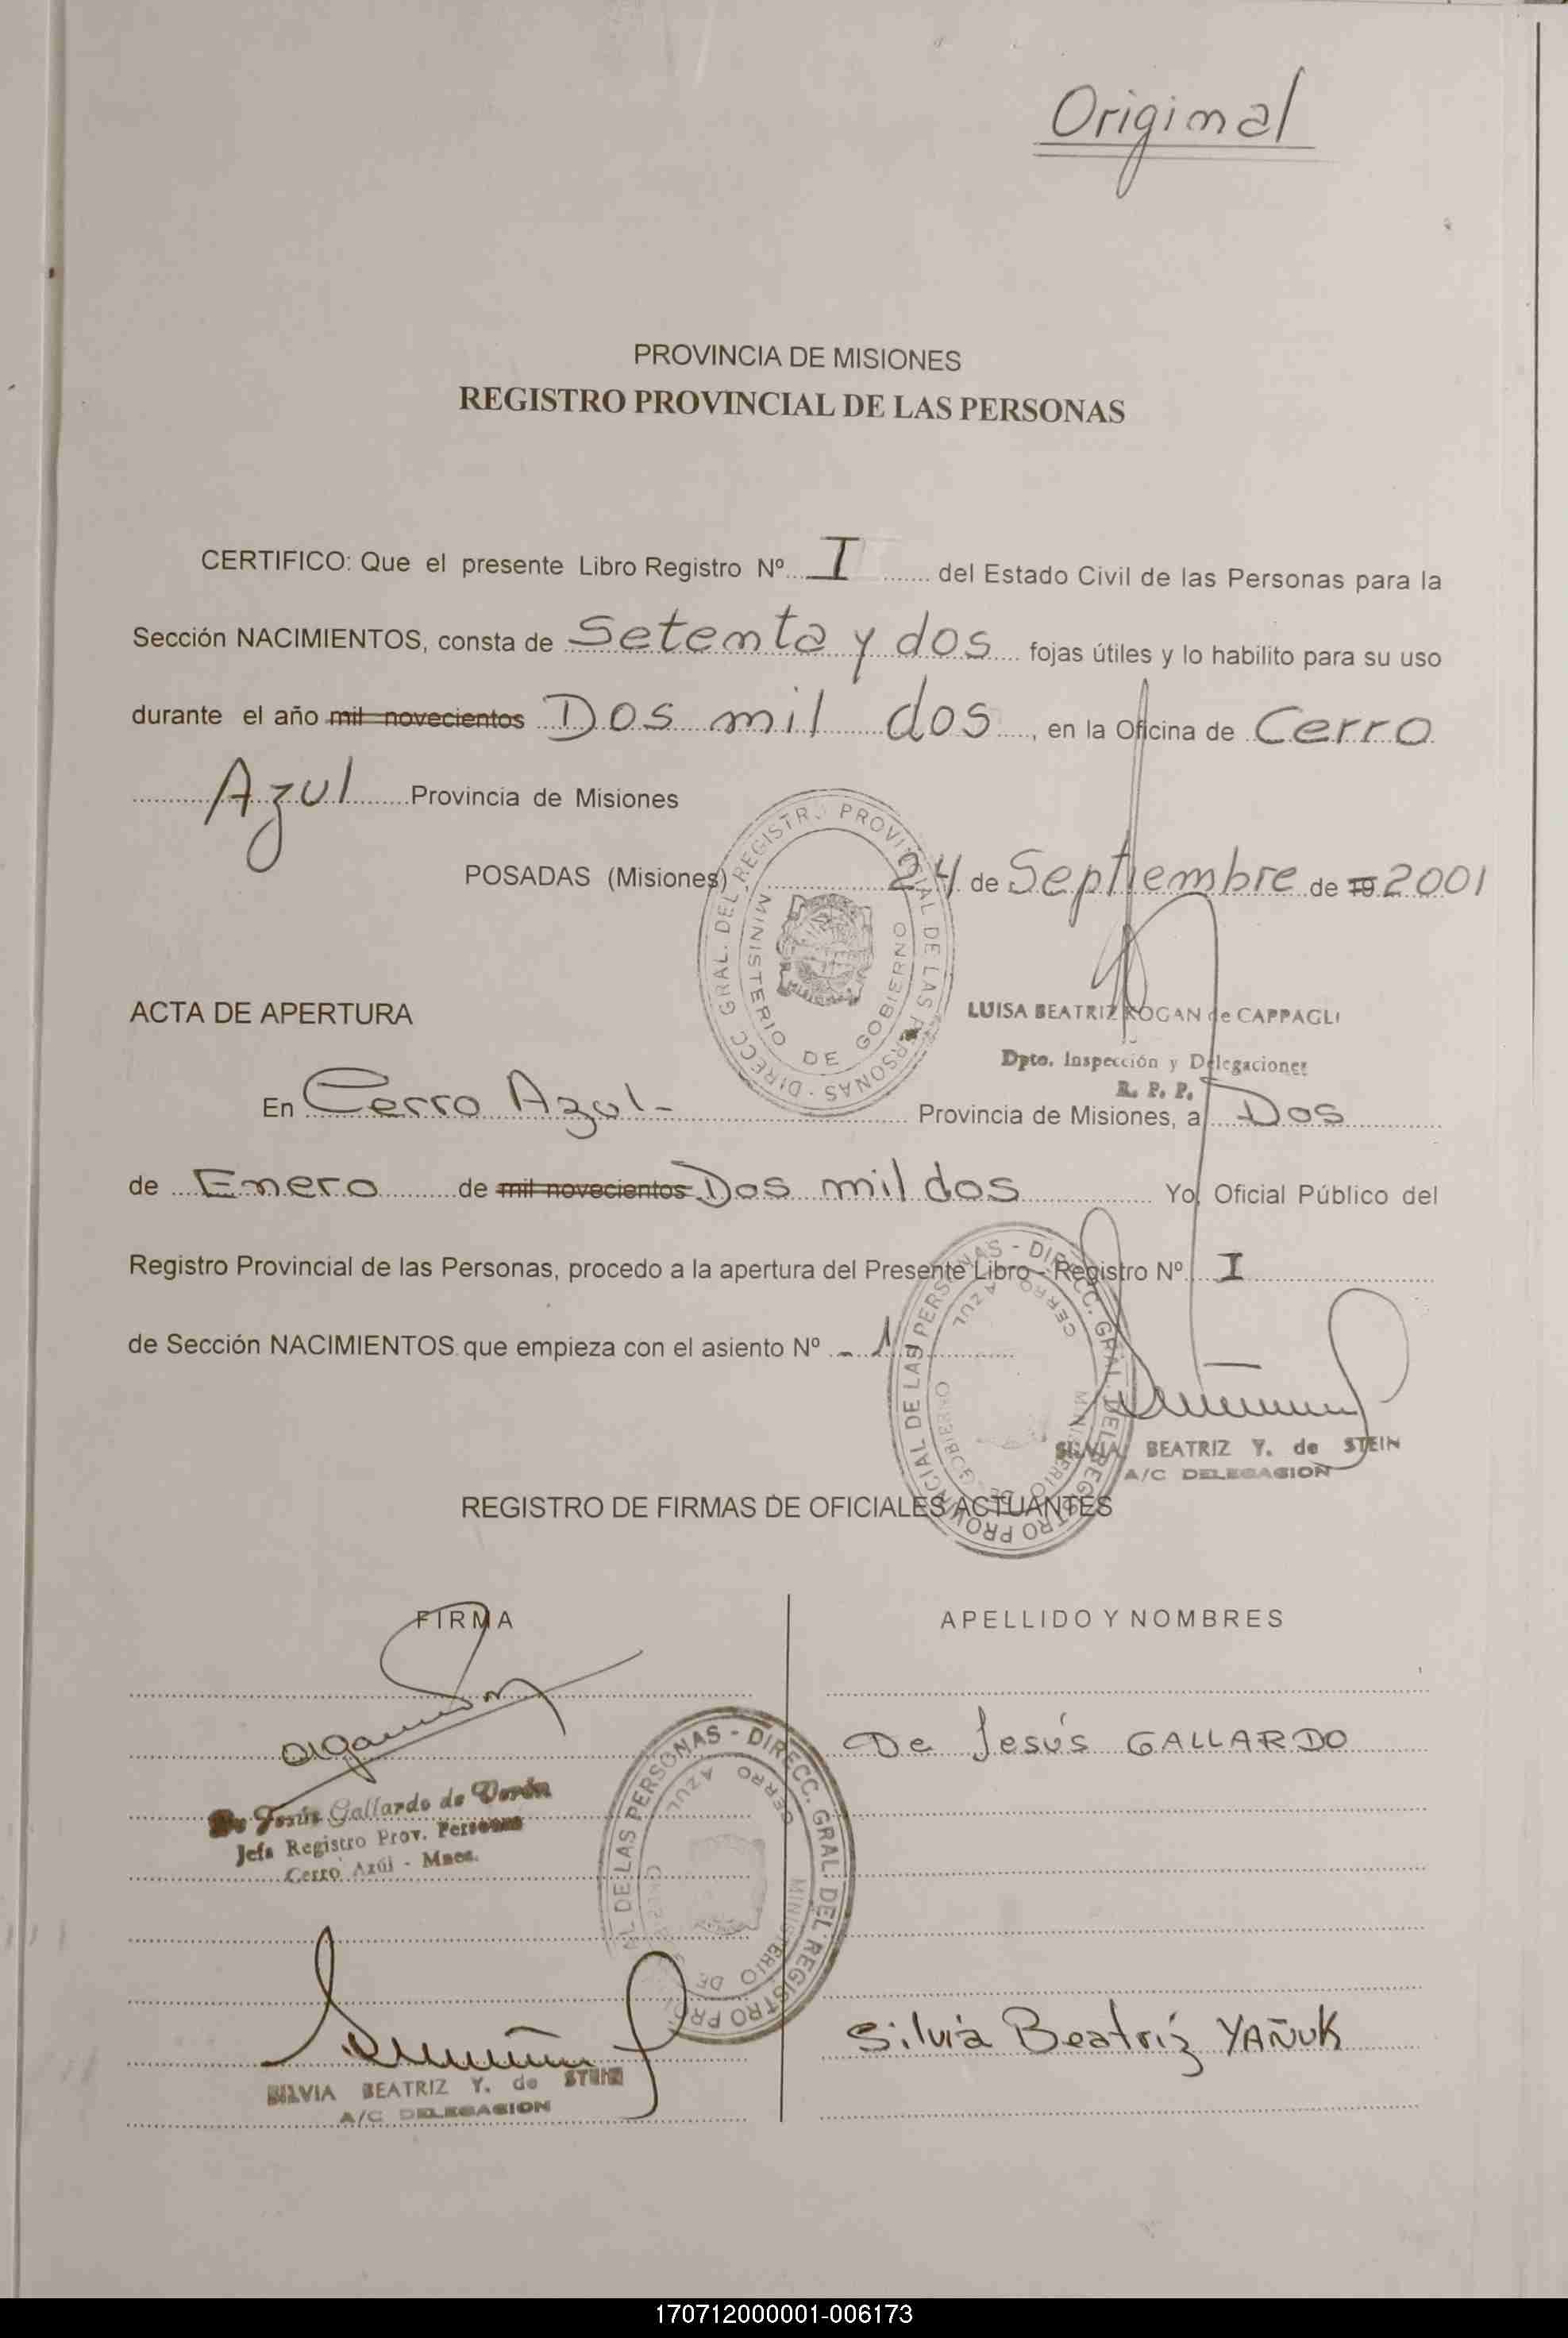 Original
PROVINCIA DE MISIONES
REGISTRO PROVINCIAL DE LAS PERSONAS
CERTIFICO: Que el presente Libro Registro Nº I del Estado Civil de las Personas para la
Sección NACIMIENTOS, consta de Setenta y dos fojas útiles y lo habilito para su uso
durante el año mil novecientos Dos mil dos, en la Oficina de Cerro
Azul Provincia de Misiones
POSADAS (Misiones) 24 de Septiembre de 19 2001
DIRECC GRAL. DEL REGISTRO PROVINCIAL DE LAS PERSONAS
MINISTERIO DE GOBIERNO
ACTA DE APERTURA
LUISA BEATRIZ ROGAN de CAPPAGLI
Dpto. Inspección y Delegaciones
R. P. P.
En Cerro Azul- Provincia de Misiones, a Dos
de Enero de mil novecientos Dos mil dos Yo, Oficial Público del
Registro Provincial de las Personas, procedo a la apertura del Presente Libro - Registro Nº I
de Sección NACIMIENTOS que empieza con el asiento Nº - 1
DIRECC. GRAL. DEL REGISTRO PROVINCIAL DE LAS PERSONAS
CERRO AZUL
MINISTERIO DE GOBIERNO
SILVIA BEATRIZ Y. de STEIN
A/C DELEGACION
REGISTRO DE FIRMAS DE OFICIALES ACTUANTES
FIRMA APELLIDO Y NOMBRES
De Jesús GALLARDO
De Jesús Gallardo de Verón
Jefa Registro Prov. Personas
Cerro Azúl - Mnes.
DIRECC. GRAL. DEL REGISTRO PROVINCIAL DE LAS PERSONAS
CERRO AZUL
MINISTERIO DE
Silvia Beatriz YAÑUK
SILVIA BEATRIZ Y. de STEIN
A/C DELEGACION
170712000001-006173